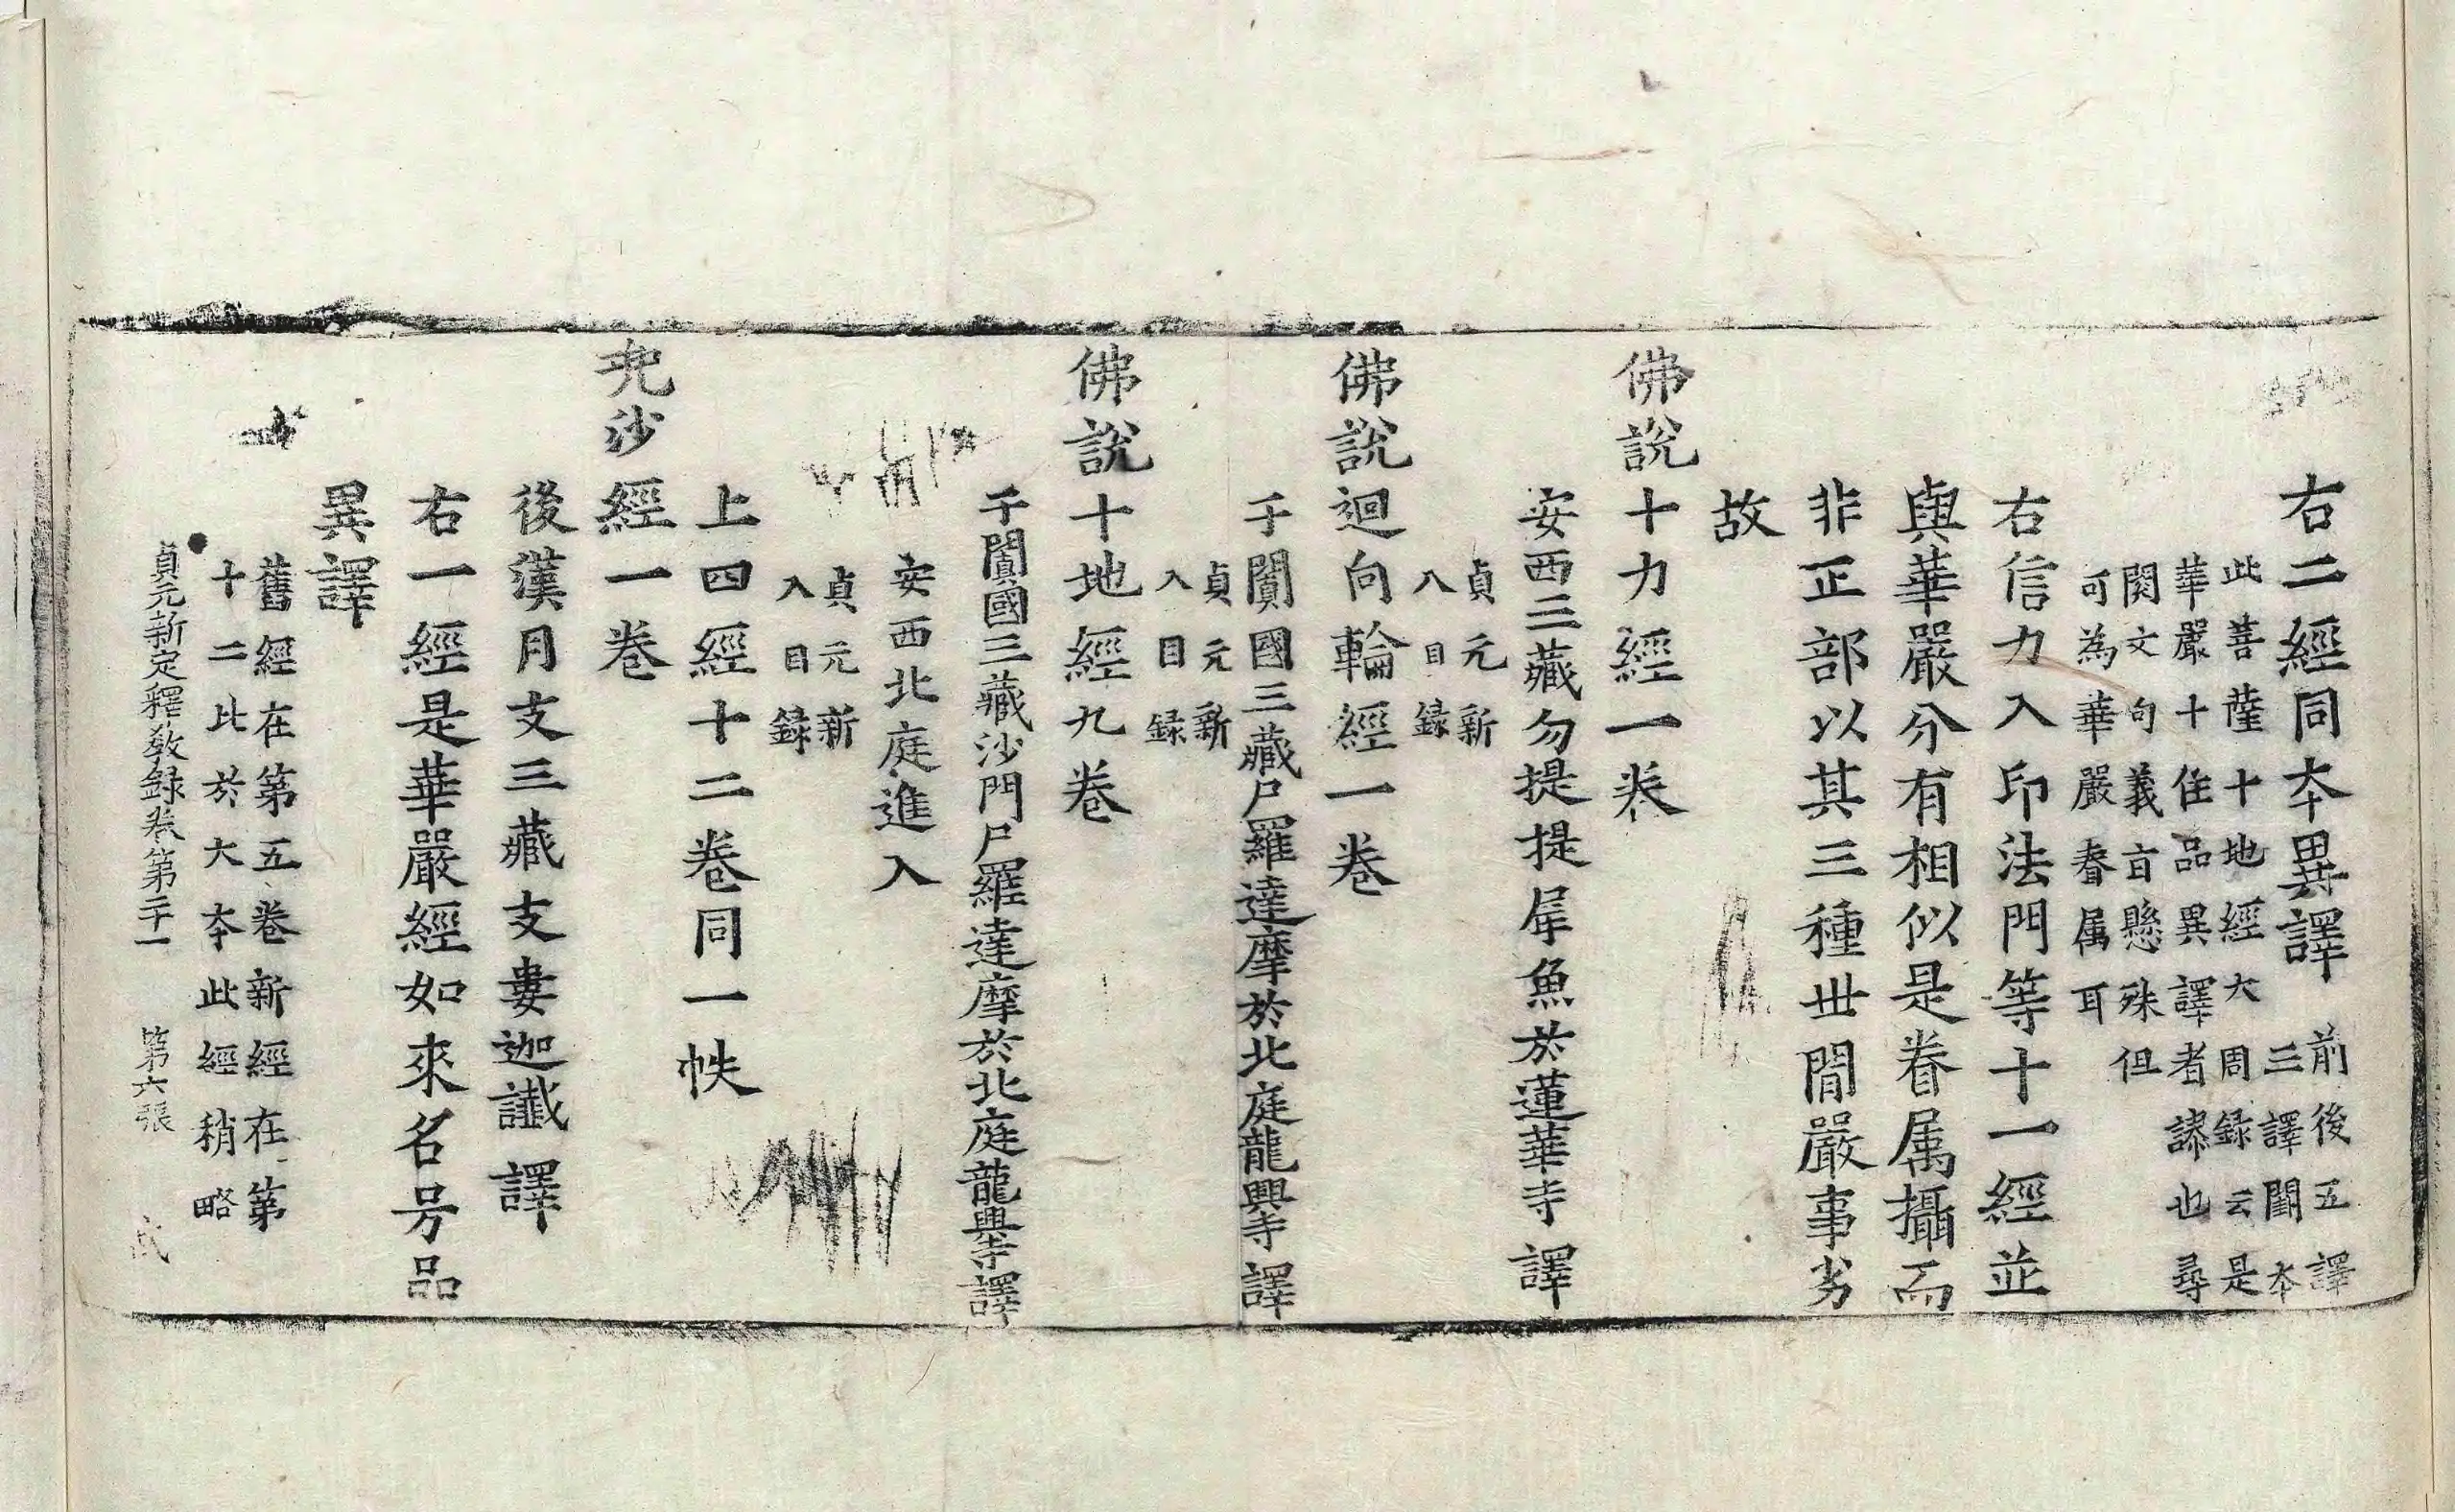 右二經同本異譯前後五譯
三譯闕本
此菩薩十地經大周録云是
華嚴十住品異譯者謬也尋
閱文句義旨懸殊但
可為華嚴眷属耳
右信力入印法門等十一經並
與華嚴分有相似是眷属攝而
非正部以其三種世間嚴事劣
故
佛說十力經一卷
貞元新
入目録
安西三藏勿提提犀魚於蓮華寺譯
佛說迴向輪經一卷
貞元新
入目録
于闐國三藏尸羅達摩於北庭龍興寺譯
佛說十地經九卷
于闐國三藏沙門尸羅達摩於北庭龍興寺譯
安西北庭進入
貞元新
入目録
上四經十二卷同一帙
兠沙經一卷
後漢月支三藏支婁迦讖譯
右一經是華嚴經如來名号品
異譯
舊經在第五卷新經在第
十二比於大本此經稍略
貞元新定釋教録卷第二十一 第六張